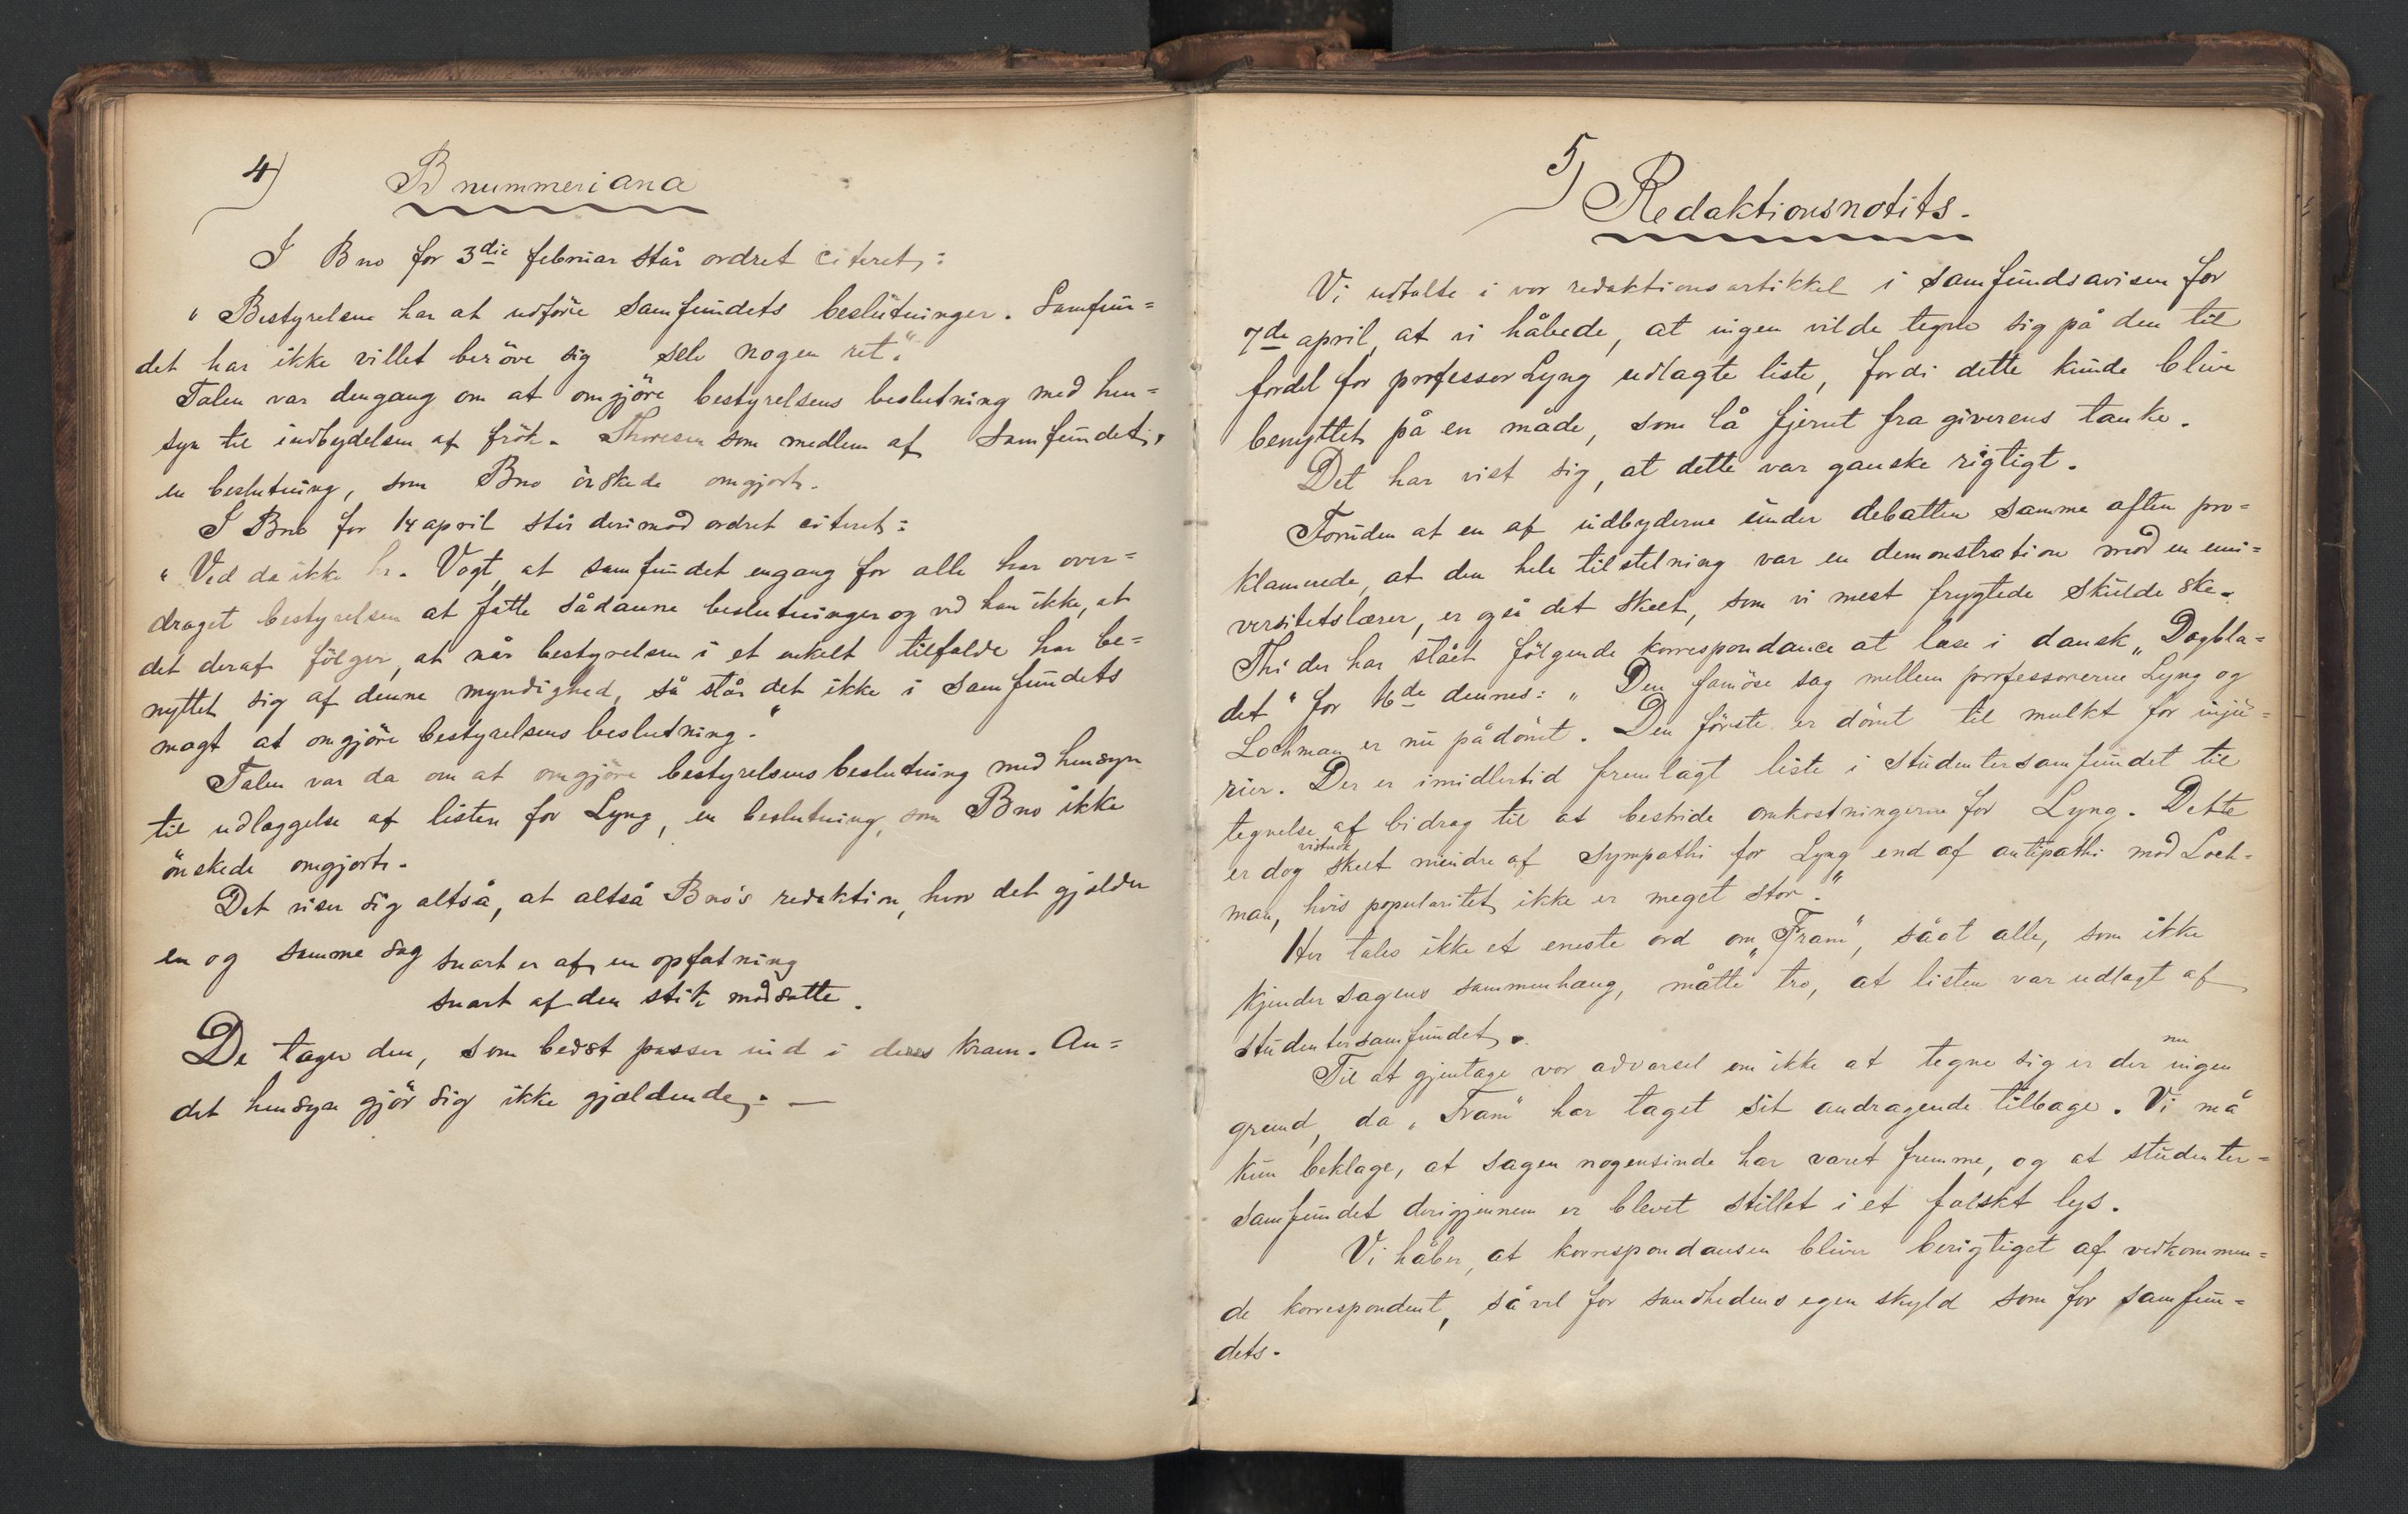 4) B nummeriana
I Bno for 3die februar står ordret citeret:
"Bestyrelsen har at udføre Samfundets beslutninger. Samfun=
det har ikke villet beröve sig selv nogen ret."
Talen var dengang om at omgjöre bestyrelsens beslutning med hen=
syn til indbydelsen af frök. Thoresen som medlem af Samfundet,
en beslutning, som Bno önskede omgjort.
I Bno for 14 april står derimod ordret citeret:
"Ved da ikke hr. Vogt, at samfundet engang for alle har over=
draget bestyrelsen at fatte sådanne beslutninger og ved han ikke, at
det deraf fölger, at når bestyrelsen i et enkelt tilfælde har be=
nyttet sig af denne myndighed, så står det ikke i Samfundets
magt at omgjöre bestyrelsens beslutning."
Talen var da om at omgjöre bestyrelsens beslutning med hensyn
til udlæggelse af listen for Lyng, en beslutning, som Bno ikke
önskede omgjort.
Det viser sig altså, at altså Bno's redaktion, hvor det gjælder
en og samme sag snart er af en opfatning
snart af den stik modsatte.
De tager den, som bedst passer ind i deres kram. An=
det hensyn gjör sig ikke gjældende. —
5) Redaktionsnotits.
Vi udtalte i vor redaktionsartikkel i Samfundsavisen for
7de april, at vi håbede, at ingen vilde tegne sig på den til
fordel for professor Lyng udlagte liste, fordi dette kunde blive
benyttet på en måde, som lå fjernt fra giverens tanke.
Det har vist sig, at dette var ganske rigtigt.
Foruden at en af udbyderne under debatten samme aften pro=
klamerede, at den hele tilstelning var en demonstration mod en uni=
versitetslærer, er også det skeet, som vi mest frygtede skulde ske.
Thi der har stået fölgende korrespondance at læse i dansk "Dagbla=
det" for 16de dennes: "Den famöse sag mellem professorerne Lyng og
Lochman er nu pådömt. Den förste er dömt til mulkt for injü=
rier. Der er imidlertid fremlagt liste i Studentersamfundet til
tegnelse af bidrag til at bestride omkostningerne for Lyng. Dette
er dog vistnok skeet mindre af Sympathi for Lyng end af antipathi mod Loch=
man, hvis popularitet ikke er meget stor."
Her tales ikke et eneste ord om "Fram", såat alle, som ikke
kjender sagens sammenhæng, måtte tro, at listen var udlagt af
studentersamfundet.
Til at gjentage vor advarsel om ikke at tegne sig er der nu ingen
grund, da "Fram" har taget sit andragende tilbage. Vi må
kun beklage, at sagen nogensinde har været fremme, og at studenter=
samfundet derigjennem er blevet stillet i et falskt lys.
Vi håber, at korrespondansen bliver berigtiget af vedkommen=
de korrespondent, såvel for sandhedens egen skyld som for samfun=
dets.